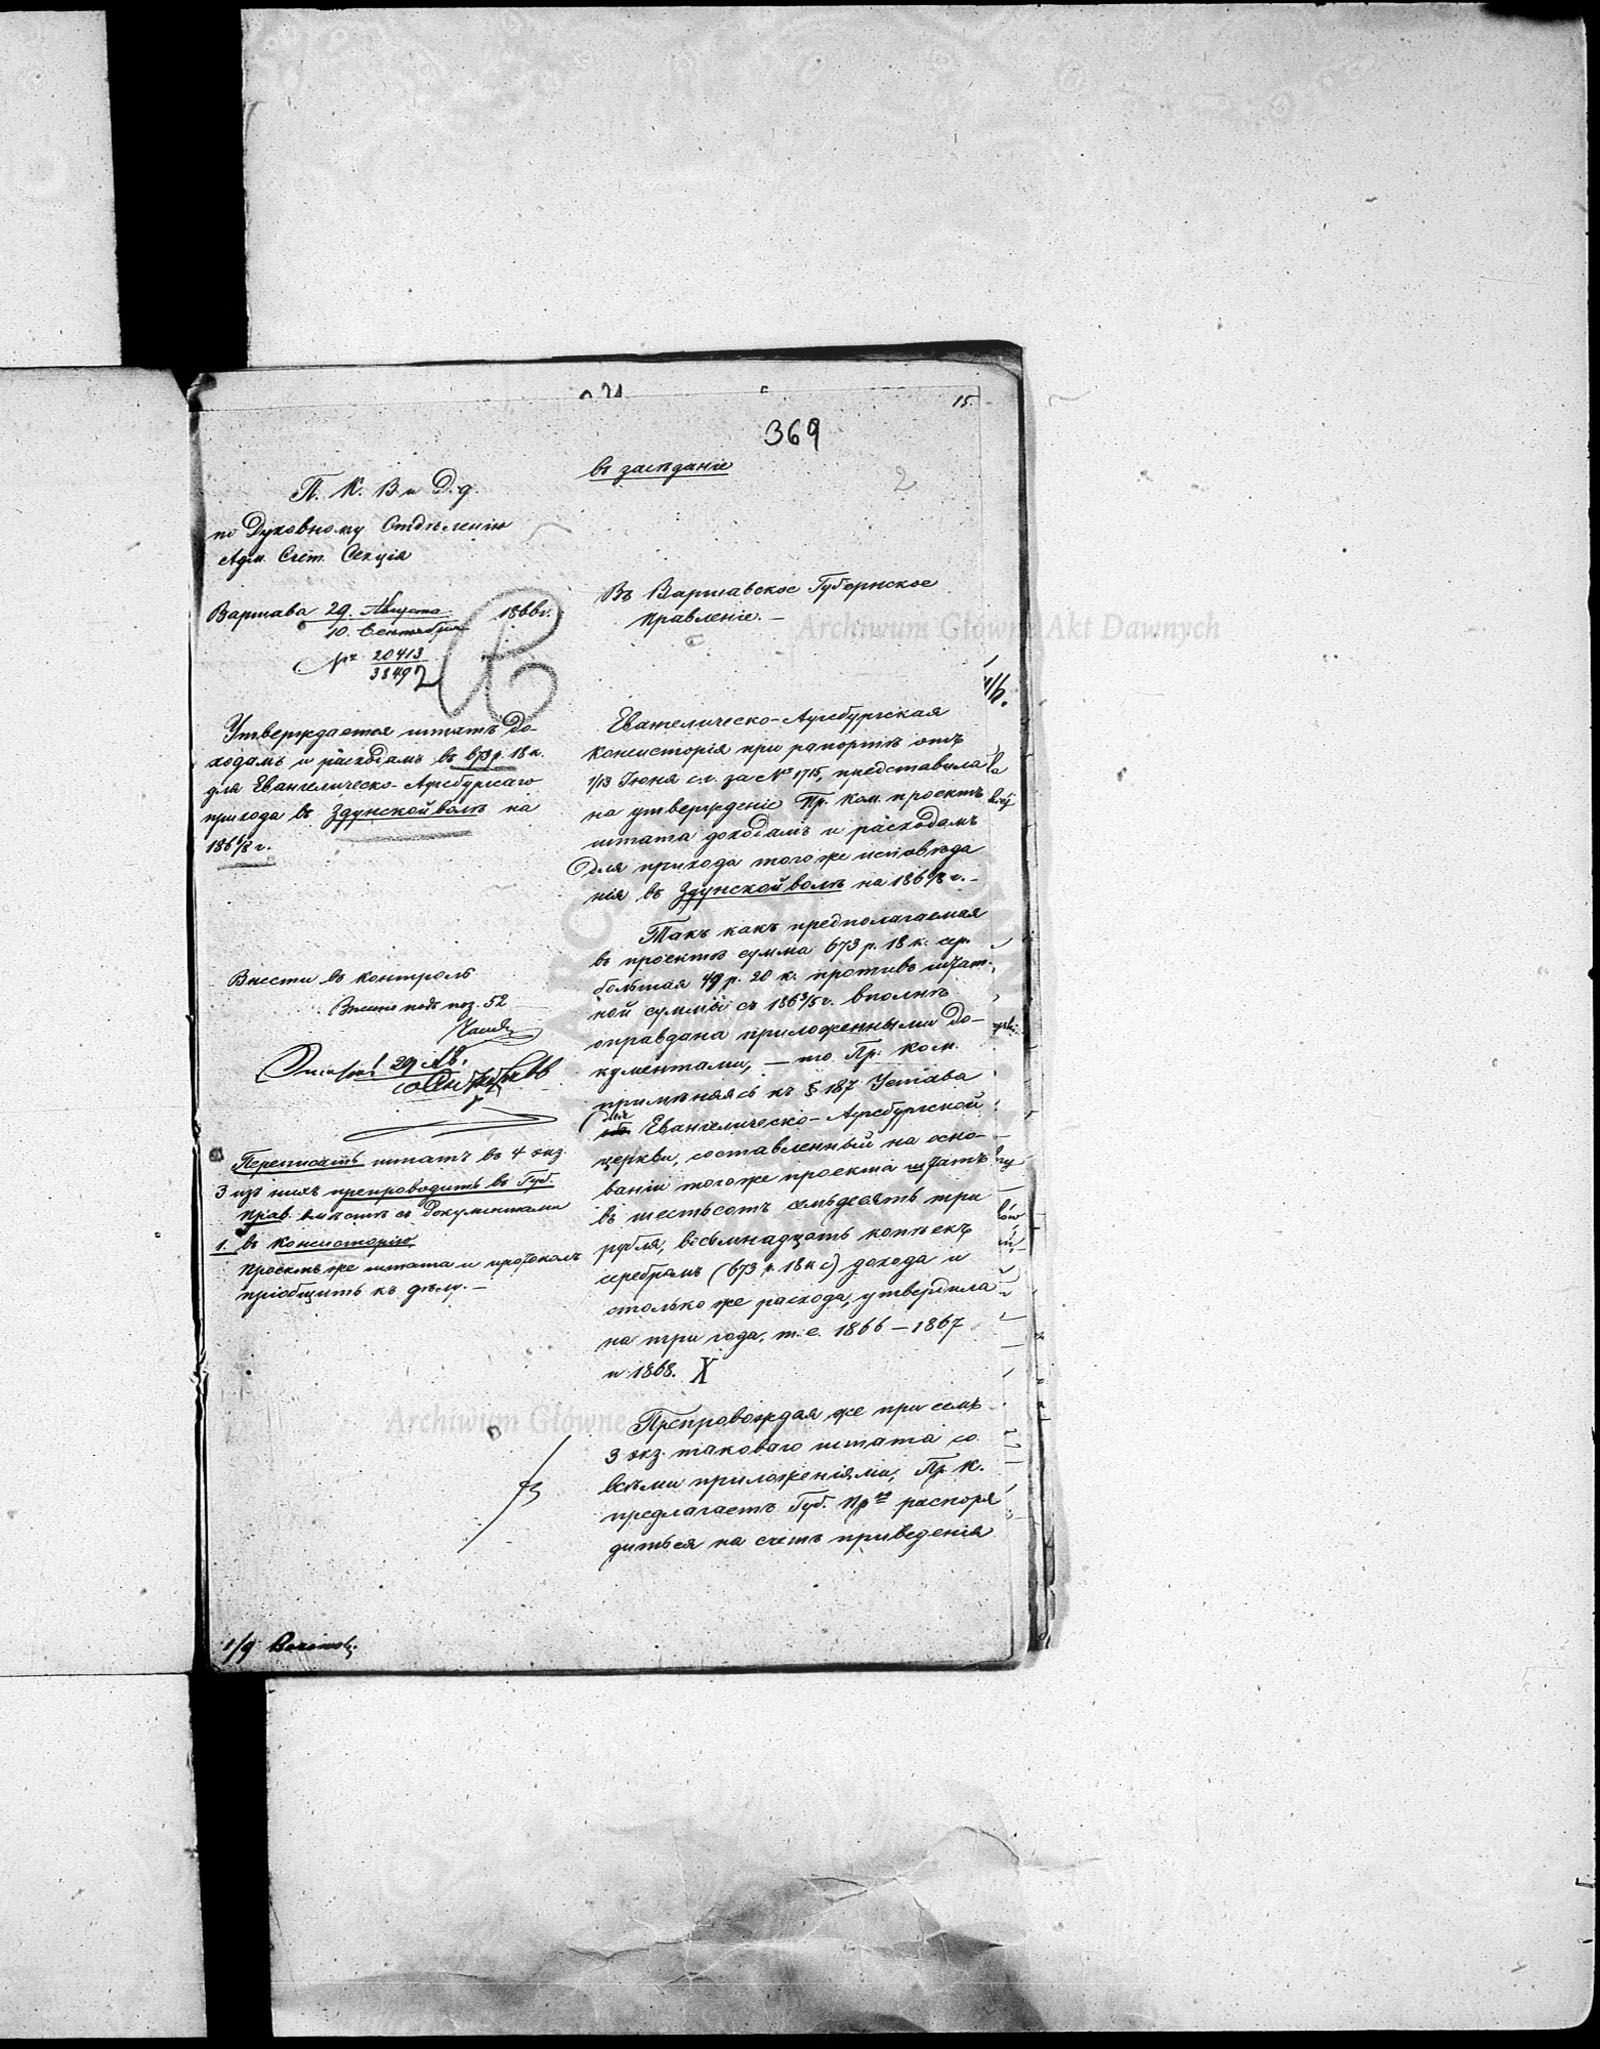 15.
369
въ засѣданіе
2
П. К. В. и Д. д.
по Духовному Отдѣленію
Адм. Счет. Секція
Варшава 29. Августа / 10. Сентября 1866 г.
№ 20413 / 38492
Утверждается штатъ до-
ходамъ и расходамъ въ 673 р. 18 к.
для Евангелическо-Аугсбургскаго
прихода въ Здунской волѣ на
1866/8 г.
Внести въ контроль
Внесено подъ поз. 52
29 Ав.
Переписать штатъ въ 4 экз.
3 изъ нихъ препроводить въ Губ.
Прав. вмѣстѣ съ документами
1. въ Консисторію,
Проектъ же штата и протоколъ
пріобщить къ дѣлу. —
1/9
Въ Варшавское Губернское
Правленіе. —
Евангелическо-Аугсбургская
Консисторія при рапортѣ отъ
1/13 Іюня с. г. за № 1715, представила
на утвержденіе Пр. Ком. проектъ
штата доходамъ и расходамъ
для прихода того же исповѣда
нія въ Здунской волѣ на 1866/8 г. —
Такъ какъ предполагаемая
въ проектѣ сумма 673 р. 18 к. сер.
большая 49 р. 20 к. противъ штат-
ной суммы съ 1863/5 г. вполнѣ
оправдана приложенными до-
кументами, — то Пр. Ком.
примѣняясь къ § 187 Устава
для Евангелическо-Аугсбургской
церкви, составленный на осно-
ваніи того же проекта штатъ
въ шестьсотъ семьдесятъ три
рубля, восьмнадцать копѣекъ
серебромъ (673 р. 18 к с) дохода и
столько же расхода, утвердила
на три года, т. е. 1866 — 1867
и 1868. X
Препровождая же при семъ
3 экз. таковаго штата со
всѣми приложеніями, Пр. К.
предлагаетъ Губ. Пр распоря
диться на счетъ приведенія
Archiwum Główne Akt Dawnych
Archiwum Główne